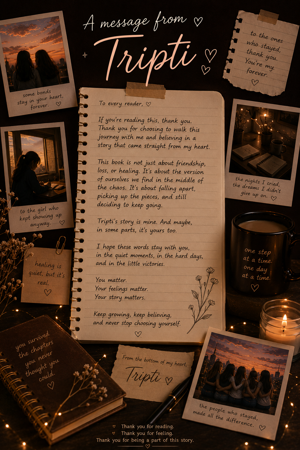 A message from
Tripti
to the ones
who stayed,
thank you.
You're my
forever.
some bonds
stay in your heart,
forever.
To every reader,
If you're reading this, thank you.
Thank you for choosing to walk this
journey with me and believing in a
story that came straight from my heart.
This book is not just about friendship,
loss, or healing. It's about the version
of ourselves we find in the middle of
the chaos. It's about falling apart,
picking up the pieces, and still
deciding to keep going.
Tripti's story is mine. And maybe,
in some parts, it's yours too.
I hope these words stay with you,
in the quiet moments, in the hard days,
and in the little victories.
You matter.
Your feelings matter.
Your story matters.
Keep growing, keep believing,
and never stop choosing yourself.
to the girl who
kept showing up
anyway.
the nights I cried,
the dreams I didn't
give up on.
healing is
quiet, but it's
real.
one step
at a time,
one day
at a time.
you survived
the chapters
you never
thought you
would.
From the bottom of my heart,
Tripti
the people who stayed,
made all the difference.
Thank you for reading.
Thank you for feeling.
Thank you for being a part of this story.